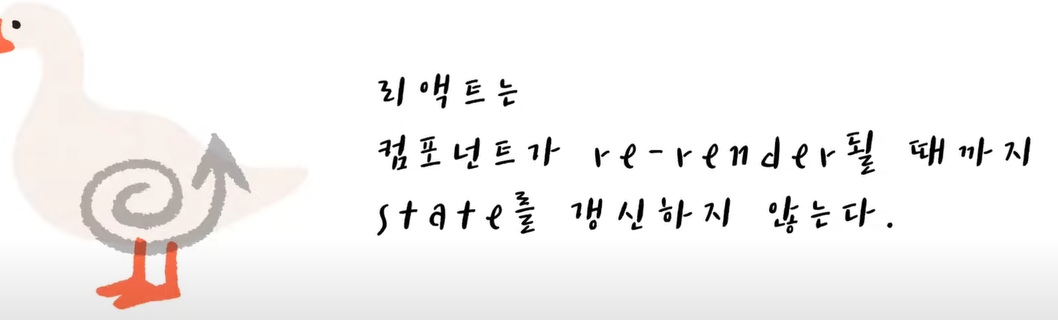 리액트는
컴포넌트가 re-render될 때까지
state를 갱신하지 않는다.